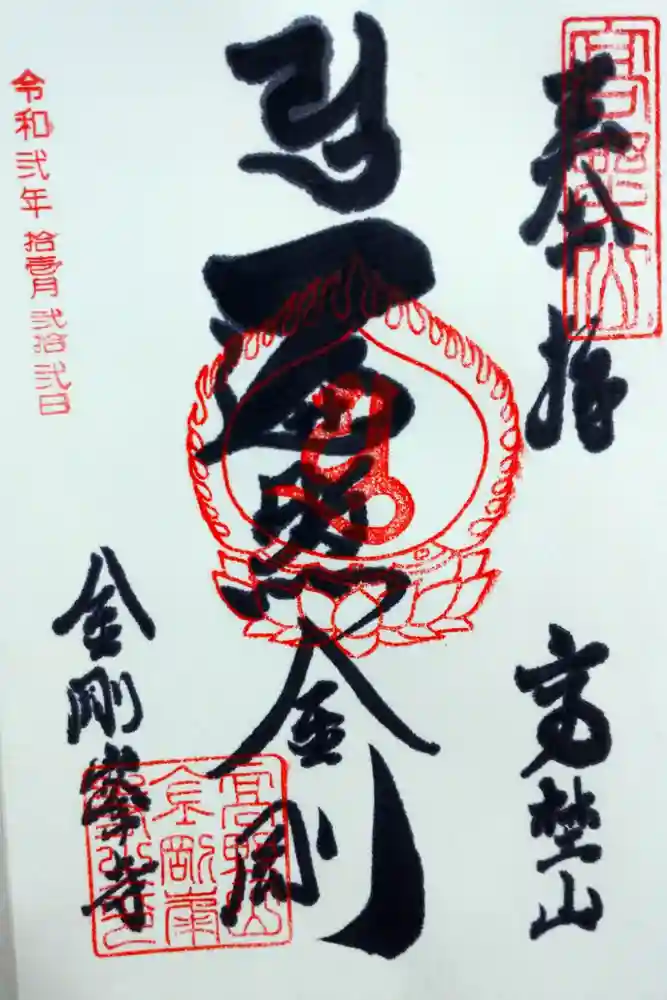 奉拝
高野山
高埜山
遍照金剛
高野山
金剛峯
寺之印
金剛峯寺
令和弐年 拾壹月 弐拾弐日